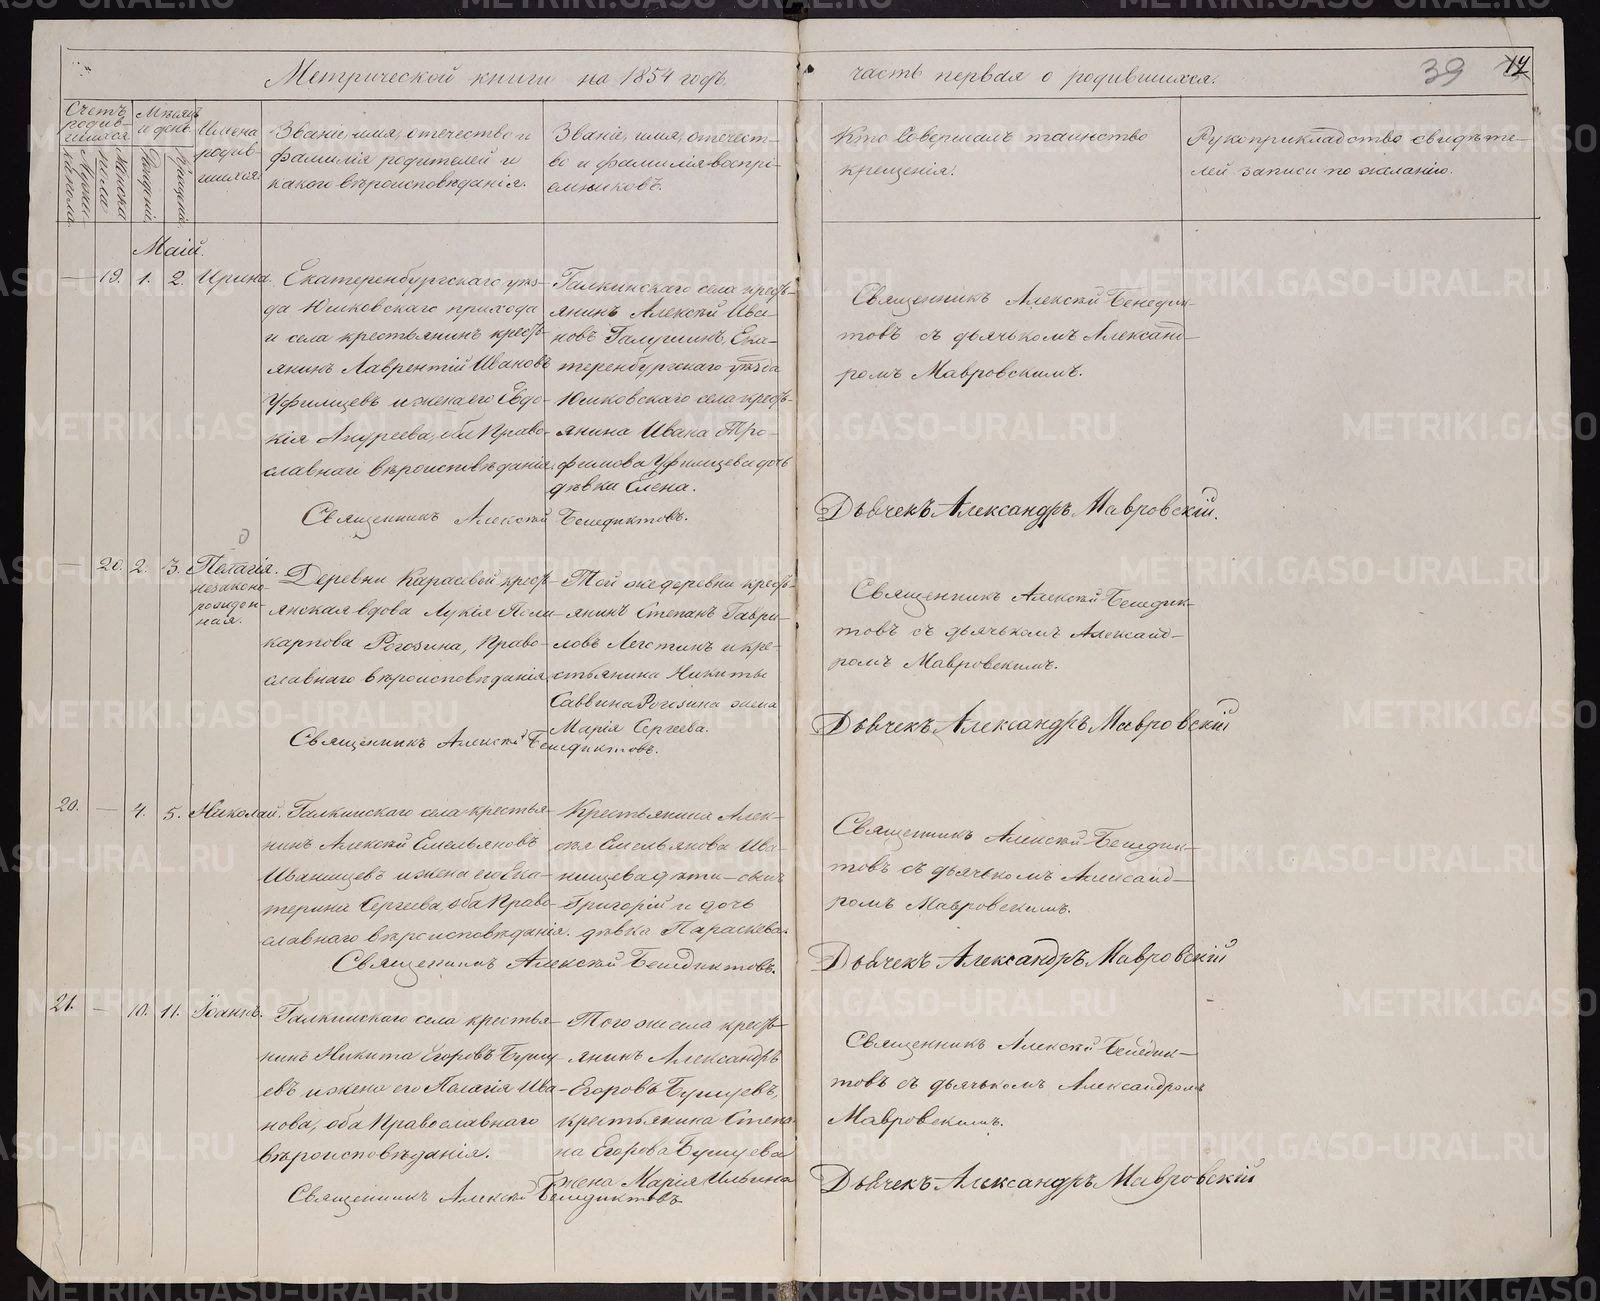 Метрической книги на 1854 годъ.
часть первая о родившихся.
39
14
Счетъ родив-шихся.
Мужеска пола.
Женска
Мѣсяцъ и день.
Рожденія.
Крещенія.
Имена родив-шихся.
Званіе, имя, отечество и
фамилія родителей и
какого вѣроисповѣданія.
Званіе, имя, отечест-
во и фамилія воспрі-
емниковъ.
Кто совершалъ таинство
крещенія.
Рукоприкладство свидѣте-
лей записи по желанію.
Маій.
— 19. 1. 2. Ирина.
Екатеренбургскаго уѣз-
да Юшковскаго прихода
и села крестьянинъ кресть-
янинъ Лаврентій Ивановъ
Уфимцевъ и жена его Евдо-
кія Андреева, оба Право-
славнаго вѣроисповѣданія.
Галкинскаго села кресть-
янинъ Алексѣй Ива-
новъ Галушинъ, Ека-
теренбургскаго уѣзда
Юшковскаго села кресть-
янина Ивана Тро-
фимова Уфимцева дочь
дѣвка Елена.
Священникъ Алексѣй Бенедиктовъ.
Священникъ Алексѣй Бенедик-
товъ съ дьячькомъ Александ-
ромъ Мавровскимъ.
Дьячекъ Александръ Мавровскій.
— 20. 2. 3. Пелагія.
незаконо-
рожден-
ная.
Деревни Карасевой кресть-
янская вдова Лукія Поли-
карпова Рогозина, Право-
славнаго вѣроисповѣданія.
Той же деревни кресть-
янинъ Степанъ Гаври-
ловъ Легостинъ и кре-
стьянина Никиты
Саввина Рогозина жена
Марія Сергеева.
Священникъ Алексѣй Бенедиктовъ.
Священникъ Алексѣй Бенедик-
товъ съ дьячькомъ Александ-
ромъ Мавровскимъ.
Дьячекъ Александръ Мавровскій
20. — 4. 5. Николай.
Галкинскаго села крестья-
нинъ Алексѣй Емельяновъ
Иванищевъ и жена его Ека-
терина Сергеева, оба Право-
славнаго вѣроисповѣданія.
Крестьянина Алек-
сѣя Емельянова Ива-
нищева дѣти — сынъ
Григорій и дочь
дѣвка Параскева.
Священникъ Алексѣй Бенедиктовъ.
Священникъ Алексѣй Бенедик-
товъ съ дьячькомъ Александ-
ромъ Мавровскимъ.
Дьячекъ Александръ Мавровскій
21. — 10. 11. Іоаннъ.
Галкинскаго села крестья-
нинъ Никита Егоровъ Бушу-
евъ и жена его Пелагія Ива-
нова, оба Православнаго
вѣроисповѣданія.
Того же села кресть-
янинъ Александръ
Егоровъ Бушуевъ,
крестьянина Степа-
на Егорова Бушуева
жена Марія Ильина
Священникъ Алексѣй Бенедиктовъ
Священникъ Алексѣй Бенедик-
товъ съ дьячькомъ Александромъ
Мавровскимъ.
Дьячекъ Александръ Мавровскій
METRIKI.GASO-URAL.RU